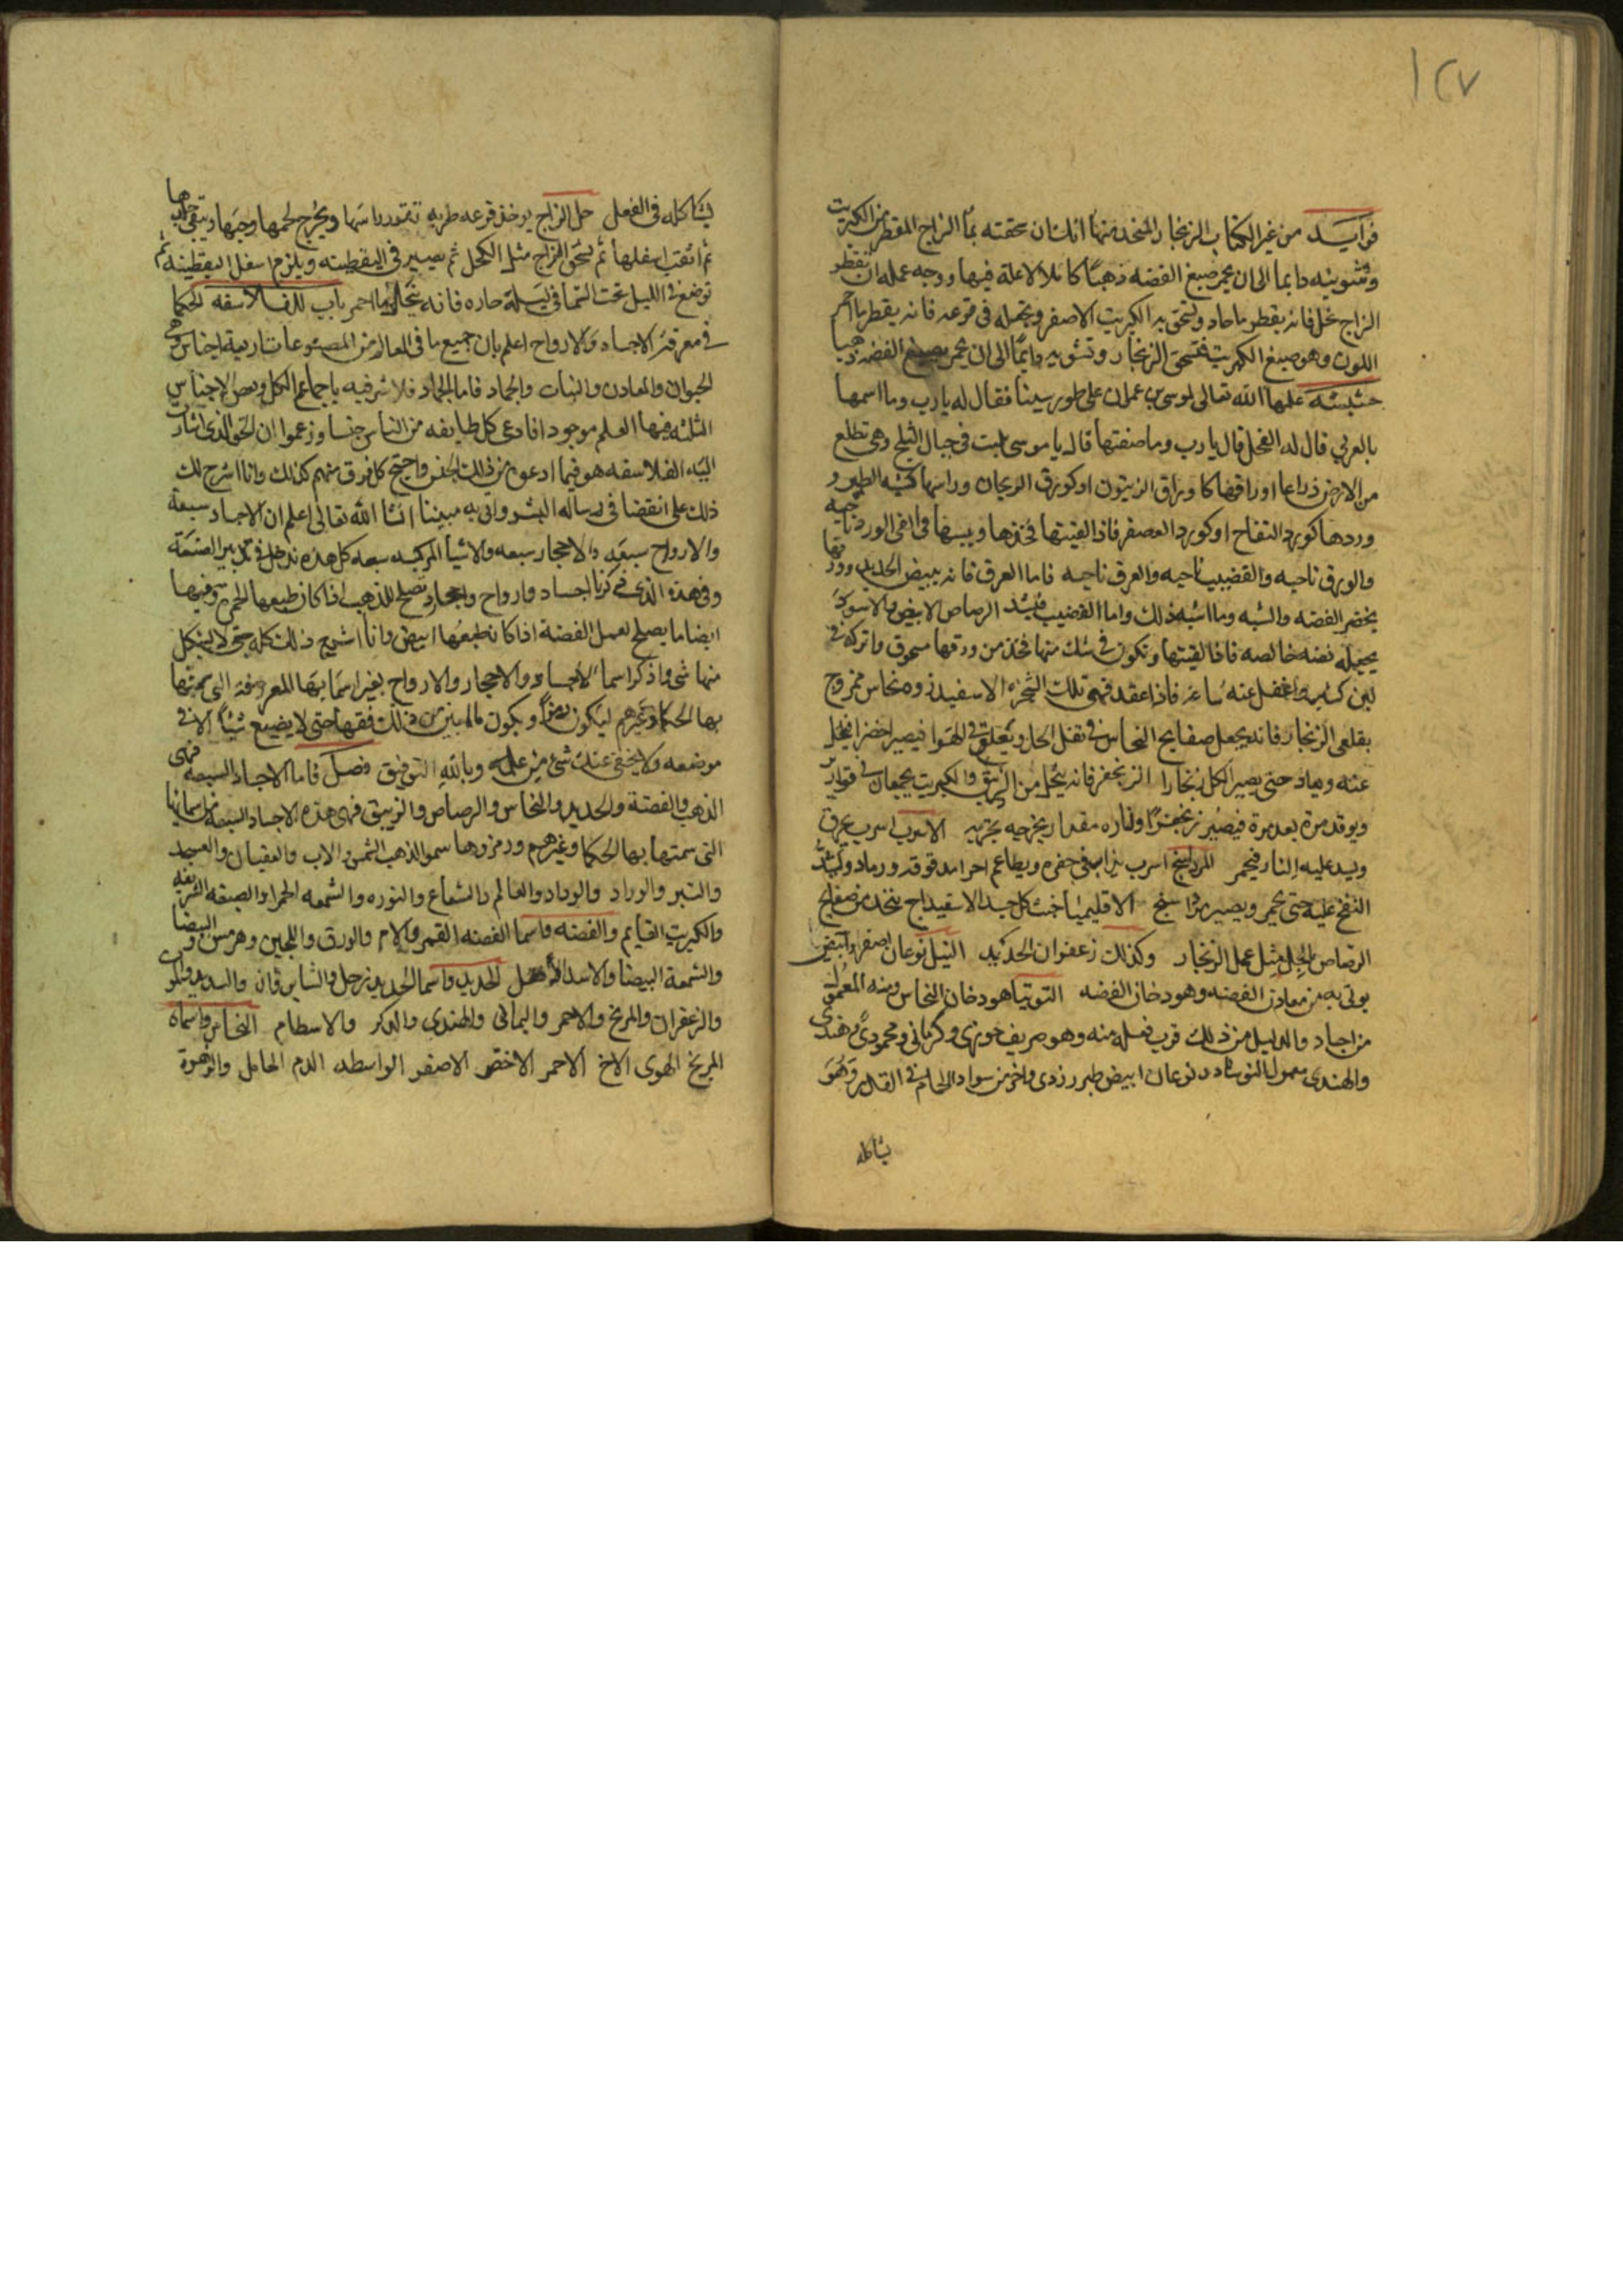 ١٢٧
فوايد من غير الكتاب الزنجار المتخذ منها انك ان سحقته بما الزاج المقطر من الكبريت
وشويته دايما الى ان يحمر صبغ الفضه ذهبا كاملا لا علة فيها ووجه عمله ان تقطر
الزاج فانه يقطر ما حاد وتسحق به الكبريت الاصفر وتجعله في قرعه فانه يقطر ما احمر
اللون وهو صبغ الكبريت فتسحق الزنجار وتشويه دايما الى ان يحمر يصبغ الفضه ذهبا
حشيشه علمها الله تعالى لموسى بن عمران على طور سينا فقال له يا رب وما اسمها
بالعربي قال له الفجل قال يا رب وما صفتها قال يا موسى تنبت في جبال الثلج وهي تطلع
من الارض ذراعا اوراقها كاوراق الزيتون او كورق الريحان وراسها كشبه الطير و
وردها كورد التفاح او كورد العصفر فاذا لقيتها خذها ويبسها في الفى الورد ناحيه
والورق ناحيه والقضيب ناحيه والعرق ناحيه فاما العرق فانه يبيض الحديد وورقها
يخضر الفضه والشبه وما اشبه ذلك واما القضيب فيشد الرصاص الابيض والاسود
يجعله فضه خالصه فاذا لقيتها وتكون في شك منها فخذ من ورقها مسحوق واتركه في
لبن كثير واغفل عنه ساعه فاذا عقد فهي تلك الشجره الاسفيدروه نحاس ممزوج
بقلعى الزنجار فانه يجعل صفايح النحاس في تفل الخل ويعلق في الهوا فيصير اخضر فيحل
عنه ويعاد حتى يصير الكل زنجارا الزنجفر فانه يتخذ من الزيبق والكبريت يجمعان في قوارير
ويوقد مرة بعد مرة فيصير زنجفرا ولناره مقدار يخرجه تجربه الاسرب اسرب يحرق
ويد عليه النار فيحمر المرداسنج اسرب يذاب في حفره ويطاعم اجر مدقوقه ورماد ويشد
النفخ عليه حتى يحمر ويصير مرداسنج الاقليميا خبث كل جسد الاسفيداج يتخذ من صفايح
الرصاص بالخل مثل عمل الزنجار وكذلك زعفران الحديد النيل نوعان اصفر وابيض
يوتى به من معادن الفضه وهو دخان الفضه التوتيا هو دخان النحاس ومنه المعمول
من اجساد والدليل من ذلك قرب فعله منه وهو صريف خوزى وكرمانى ومحمودى وهندى
والهندى معمول النوشادر نوعان ابيض طبرزدى واخر من سواد الحمام في القدر وهو
يشاكله
يشاكله في الفعل حل الزاج يوخذ قرعه طريه تقور راسها ويخرج لحمها وحبها ويبقى جلدها
ثم اثقب اسفلها ثم تسحق الزاج مثل الكحل ثم يصير في اليقطينه ويلزم اسفل اليقطينه ثم
توضع في الليل تحت السما في ليلة حاره فانه ينحل ما احمر باب للفلاسفه الحكما
في معرفة الاجساد والارواح اعلم بان جميع ما في العالم من المصنوعات اربعة اجناس وهي
الحيوان والمعادن والنبات والجماد فاما الجماد فلا شرفيه باجماع الكل وبعض الاجناس
الثلثه فيها العلم موجود اذا دعى كل طايفه من الناس جنسا وزعموا ان الحق الذى اشارت
اليه الفلاسفه هو فيما ادعوه من ذلك الجنس واحتج كل فرق منهم كذلك وانا اشرح لك
ذلك على انقضا في رساله البشر واتى به مبينا انشا الله تعالى اعلم ان الاجساد سبعة
والارواح سبعه والاحجار سبعه والاشيا المركبه سبعه كل هذه تدخل في تدبير الصنعة
وفي هذه الذى ذكرنا اجساد وارواح واحجار تصلح للذهب اذا كان طبعها الحمره وفيها
ايضا ما يصلح لعمل الفضة اذا كان طبعها ابيض وانا اشرح ذلك كله حتى لا يشكل
منها شى واذكر اسما الاجساد والاحجار والارواح بغير اسمايها المعروفه التى سمتها
بها الحكما وغيرهم ليكون رمزا ويكون مالمبين من ذلك فقها حتى لا يضيع شيئا الا في
موضعه ولا يخفى عنك شى من علمه وبالله التوفيق فصل فاما الاجساد السبعه فهى
الذهب والفضة والحديد والنحاس والرصاص والزيبق فهى هذه الاجساد السبعه باسمايها
التى سمتها بها الحكما وغيرهم ورمزوها سموا الذهب الشمس الاب والعقيان والعسجد
والتبر والوراد والوداد والعالم والشعاع والنوره والشمعه الحمرا والصبغه الشريفه
والكبريت القايم والفضه واسما الفضه القمر والام والورق واللجين وهرمس البيضا و
والشمعة البيضا والاسد الحديد واسما الحديد زحل والشابرقان والسديد والمو
والزعفران والمريخ والاحمر واليمانى والهندى والذكر والاسطام النحاس واسماه
المريخ الهوى الاخ الاحمر الاخضر الاصفر الواسطه الدم الحامل والزهرة